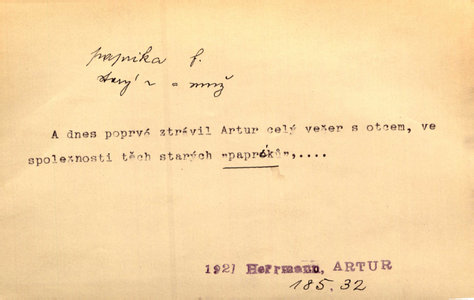 paprika f.
starý ~ = muž
A dnes poprvé ztrávil Artur celý večer s otcem, ve
společnosti těch starých "papróků",....
1927 Herrmann, ARTUR
185.32